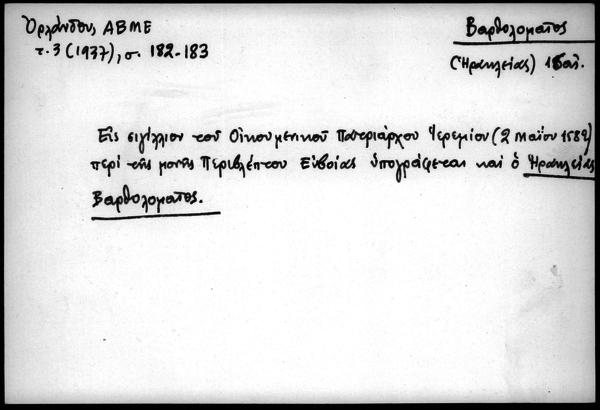 Ὀρλάνδος ΑΒΜΕ
τ. 3 (1937), σ. 182-183
Βαρθολομαῖος
(Ἡρακλείας) 16 αἰ.
Εἰς σιγίλλιον τοῦ Οἰκουμενικοῦ Πατριάρχου Ἱερεμίου (2 Μαΐου 1582)
περὶ τῆς μονῆς Περιβλέπτου Εὐβοίας ὑπογράφεται καὶ ὁ Ἡρακλείας
Βαρθολομαῖος.